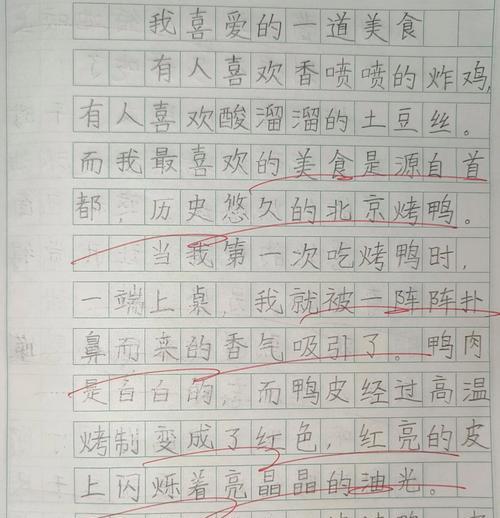 我喜爱的一道美食
有人喜欢香喷喷的炸鸡,
有人喜欢酸溜溜的土豆丝。
而我最喜欢的美食是源自首
都,历史悠久的北京烤鸭。
当我第一次吃烤鸭时,
一端上桌,我就被一阵阵扑
鼻而来的香气吸引了。鸭肉
是白白的,而鸭皮经过高温
烤制变成了红色,红亮的皮
上闪烁着亮晶晶的油光。